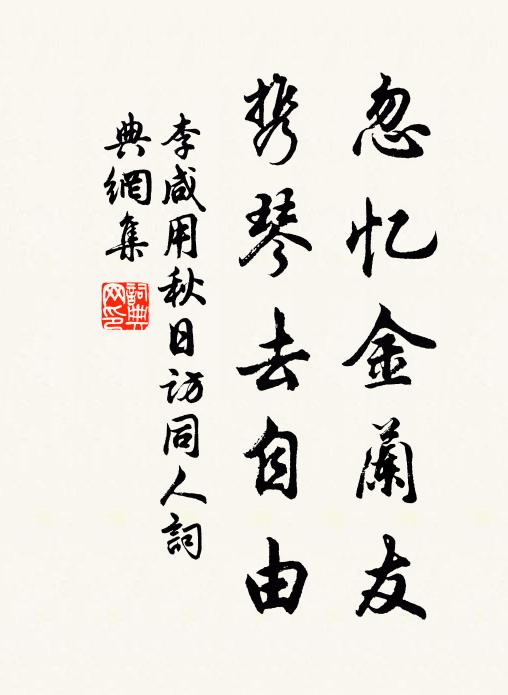 忽忆金蘭友
携琴去自由
李咸用秋日访同人詞
典網集
詞典
网印